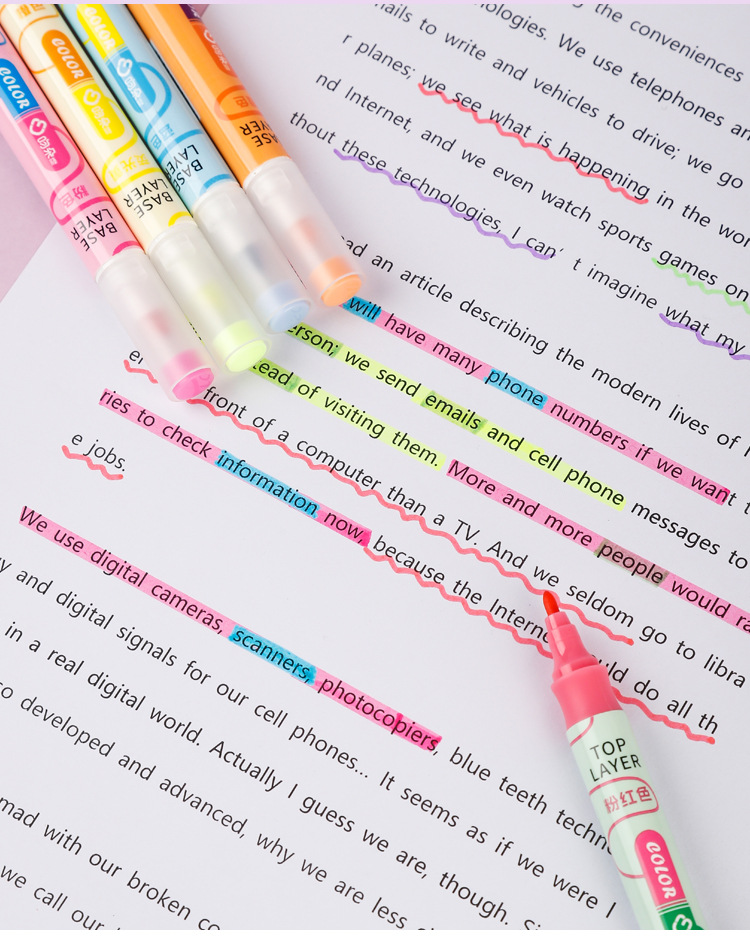 the conveniences
nologies. We use telephones an
mails to write and vehicles to drive; we go
r planes; we see what is happening in the wor
nd Internet, and we even watch sports games on
thout these technologies, I can't imagine what my
ad an article describing the modern lives of
will have many phone numbers if we want t
erson; we send emails and cell phone messages to
tead of visiting them. More and more people would ra
front of a computer than a TV. And we seldom go to libra
ries to check information now, because the Interne uld do all th
e jobs.
We use digital cameras, scanners, photocopiers, blue teeth techno
y and digital signals for our cell phones... It seems as if we were l
in a real digital world. Actually I guess we are, though. Si
so developed and advanced, why we are less
mad with our broken co
we call our
COLOR
粉色
BASE LAYER
COLOR
BASE LAYER
COLOR
BASE LAYER
BASE LAYER
TOP
LAYER
粉红色
COLOR